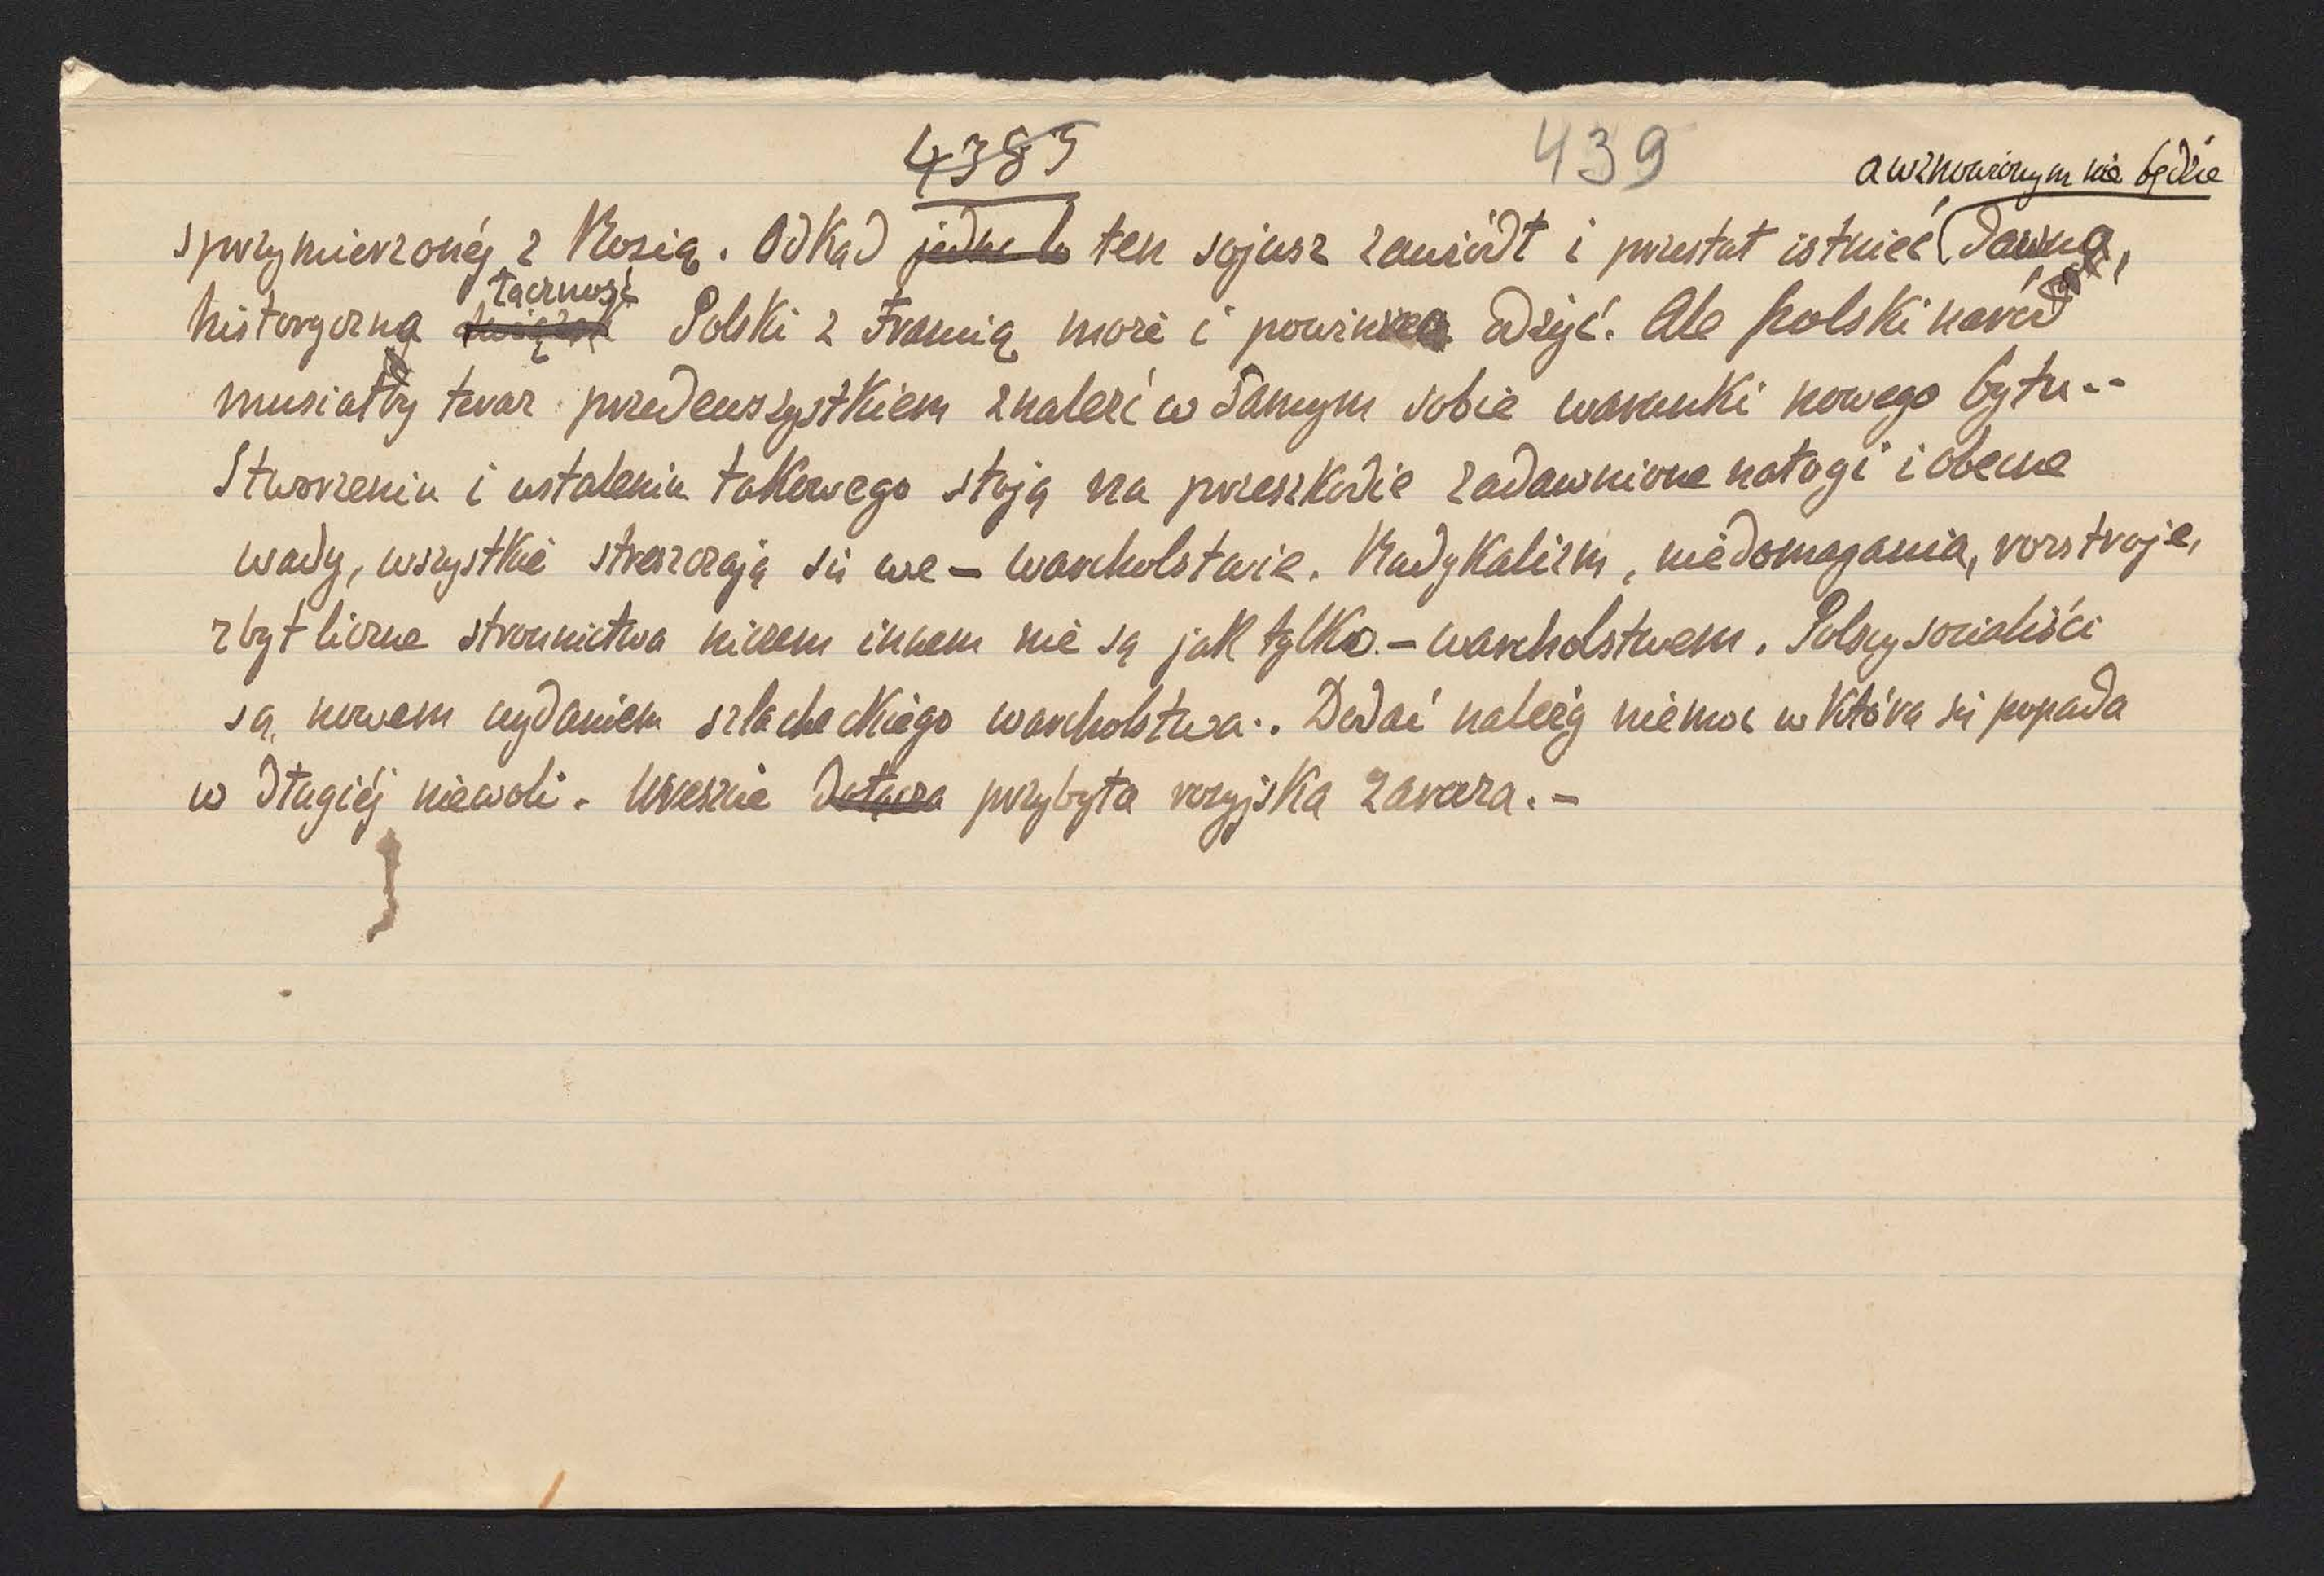 4385
439
a wznowionym nie będzie
sprzymierzonéj z Rosią. Odkąd jedna k ten sojusz zawiódł i przestał istnieć dawna,
łączność
historyczna związek Polski z Francią może i powinna odżyć. Ale polski naród
musiałby teraz przedewszystkiem znaleźć w samym sobie warunki nowego bytu..
Stworzeniu i ustaleniu takowego stoją na przeszkodzie zadawnione nałogi i obecne
wady, wszystkie streszczają się we – warcholstwie. Radykalizm, niedomagania, rozstroje,
zbyt liczne stronnictwa niczem innem nie są jak tylko – warcholstwem. Polscy socialiści
są nowem wydaniem szlacheckiego warcholstwa.. Dodać należy niemoc w którą się popada
w długiéj niewoli. Wreszcie dołącza przybyła rosyjska zaraza. –